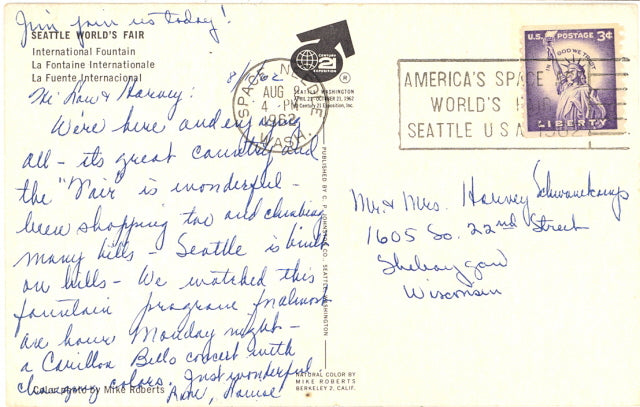 Jim join us today!
SEATTLE WORLD'S FAIR
International Fountain
La Fontaine Internationale
La Fuente Internacional
8/ /62
Hi & Harvey:
We're here and enjoying
all - its great country and
the "Fair" is wonderful -
been shopping too and climbing
many hills - Seattle is built
on hills - We watched this
fountain program for almost
an hour Monday night -
a Carillon Bells concert with
changing colors. Just wonderful
Color photo by Mike Roberts
CENTURY
21
EXPOSITION
®
SEATTLE, WASHINGTON
APRIL 21-OCTOBER 21, 1962
Century 21 Exposition, Inc.
SPACE NEEDLE
AUG
4 PM
1962
WASH.
AMERICA'S SPACE
WORLD'S
SEATTLE U S A 1962
U.S. POSTAGE 3¢
IN GOD WE TRUST
LIBERTY
PUBLISHED BY C. P. JOHNSTON CO., SEATTLE, WASHINGTON
NATURAL COLOR BY
MIKE ROBERTS
BERKELEY 2, CALIF.
Mr. & Mrs. Harvey Schwanekamp
1605 So. 22nd Street
Sheboygan
Wisconsin